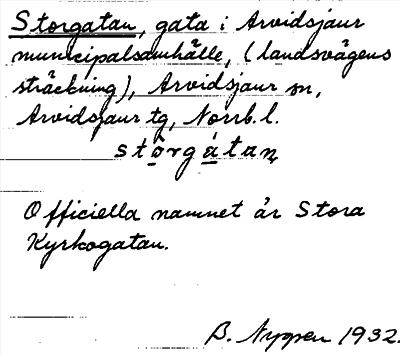 Storgatan, gata i Arvidsjaur
municipalsamhälle, (landsvägens
sträckning), Arvidsjaur sn,
Arvidsjaur tg, Norrb. l.
stòrgátaṇ
Officiella namnet är Stora
Kyrkogatan.
B. Nyppen 1932.